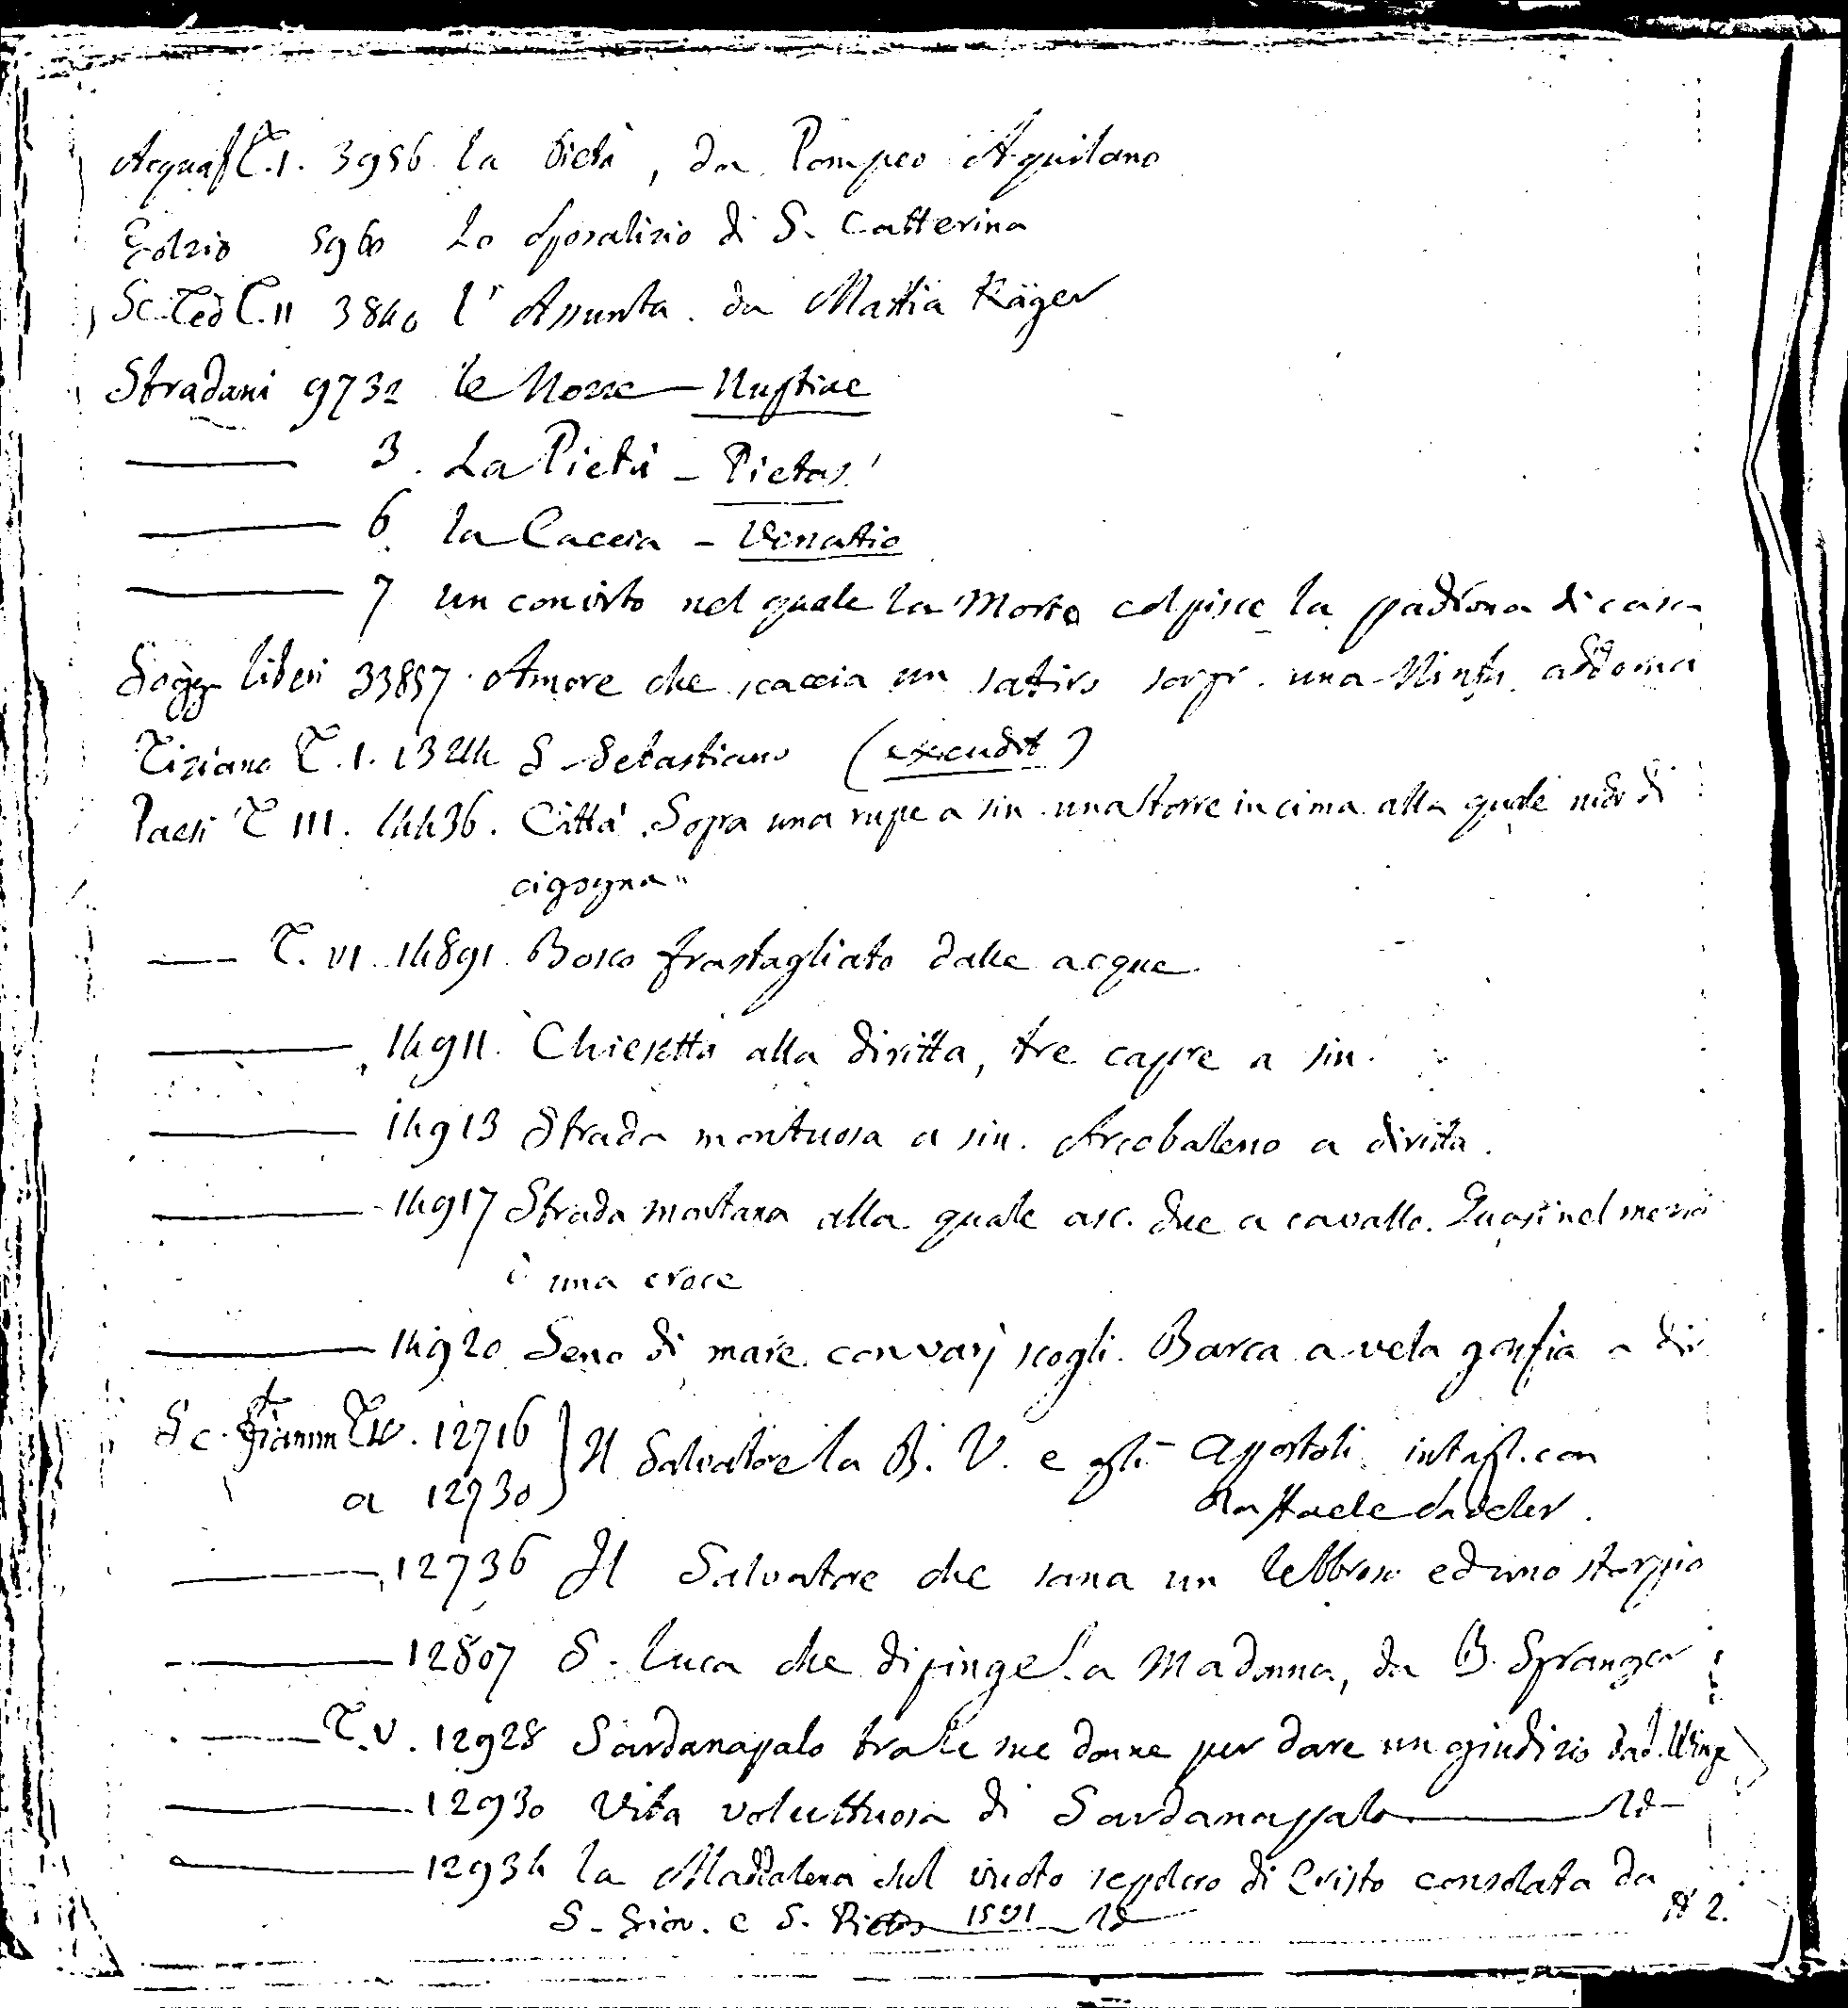 Acquaf T.I. 3956 la Pietà, da Pompeo Aquilano
Golzio 5960 Lo Sposalizio di S. Catterina
Sc. Ted T.II 3840 l'Assunta. da Mattia Käger
Stradani 9732 le Nozze — Nuptiae
——— 3. La Pietà – Pietas
——— 6 la Caccia – Venatio
——— 7 un convito nel quale la Morte colpisce la padrona di casa
Sogg. liberi 33857. Amore che scaccia un satiro sorpr. una Ninfa addorma
Tiziano T.I. 1324 S Sebastiano (excudit)
Paesi T III. 14436. Città. Sopra una rupe a sin. una torre in cima alla quale nido di
cigogna
—— T. VI. 14891. Bosco frastagliato dalle acque
——— 14911. Chiesetta alla diritta, tre capre a sin.
——— 14913 Strada montuosa a sin. Arcobaleno a diritta.
——— 14917 Strada montana alla quale asc. due a cavallo. Quasi nel mezzo
è una croce
——— 14920 Seno di mare con varj scogli. Barca a vela gonfia a dir
Sc. Fiamm T.IV. 12716 Il Salvatore la B. V. e gli Appostoli intagl. con
a 12730 Raffaele Sadeler.
——— 12736 Il Salvatore che sana un lebbroso ed uno storpio
——— 12807 S. Luca che dipinge la Madonna, da B. Spranger
——— T.V. 12928 Sardanapalo tra le sue donne per dare un giudizio
——— 12930 Vita voluttuosa di Sardanappalo ——— Id—
——— 12934 la Maddalena sul vuoto sepolcro di Cristo consolata da
S. Giov. e S. Pietro 1591 — Id
N 2.